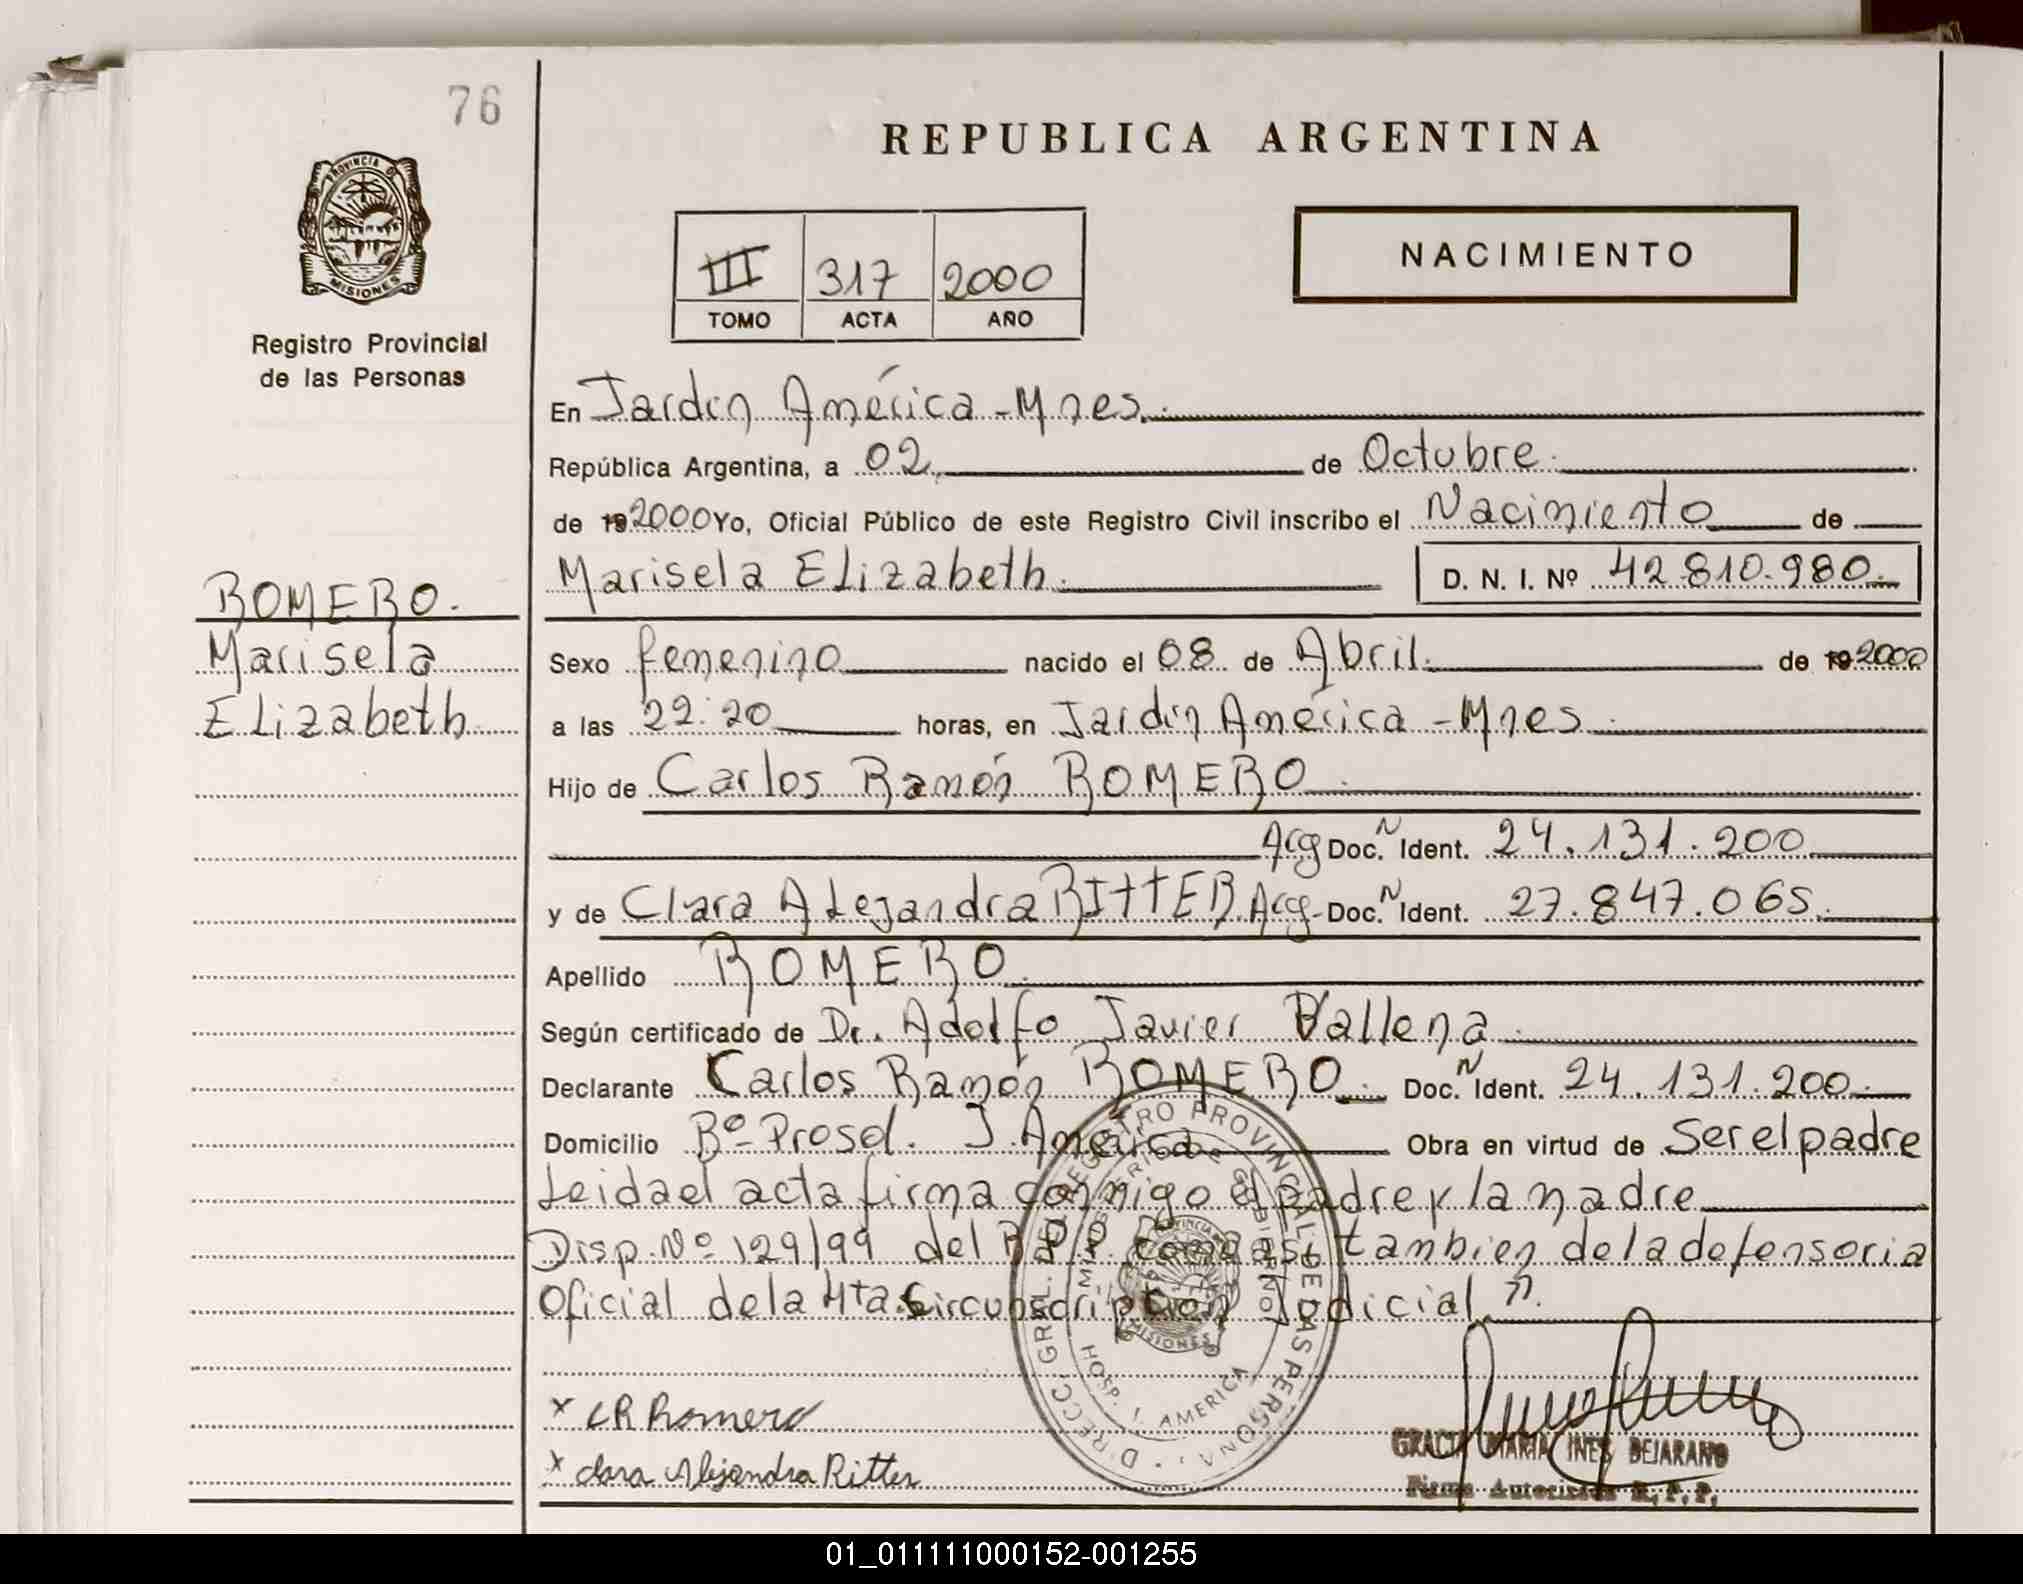 76
REPUBLICA ARGENTINA
PROVINCIA DE
MISIONES
Registro Provincial
de las Personas
III 317 2000
TOMO ACTA AÑO
NACIMIENTO
En Jardín América - Mnes.
República Argentina, a 02 de Octubre
de 19 2000 Yo, Oficial Público de este Registro Civil inscribo el Nacimiento de
Marisela Elizabeth D. N. I. Nº 42.810.980
ROMERO.
Marisela
Elizabeth
Sexo femenino nacido el 08 de Abril de 19 2000
a las 22:20 horas, en Jardín América - Mnes
Hijo de Carlos Ramón ROMERO
Arg Doc. N Ident. 24.131.200
y de Clara Alejandra RITTER Arg- Doc. N Ident. 27.847.065
Apellido ROMERO
Según certificado de Dr. Adolfo Javier Ballena
Declarante Carlos Ramón ROMERO Doc. N Ident. 24.131.200
Domicilio Bº Prosol. J. América Obra en virtud de Ser el padre
Leida el acta firma conmigo el padre y la madre
Disp. Nº 129/99 del R.P.P. como así tambien de la defensoria
Oficial de la 4ta. Circunscripcion Judicial
DIRECC. GRAL. DEL REGISTRO PROVINCIAL DE LAS PERSONAS
MINISTERIO DE GOBIERNO
PROVINCIA
MISIONES
HOSP. J. AMERICA
x C R Romero
x Clara Alejandra Ritter
MARIA INES BEJARANO
Firma Autorizada R. P. P.
01_011111000152-001255